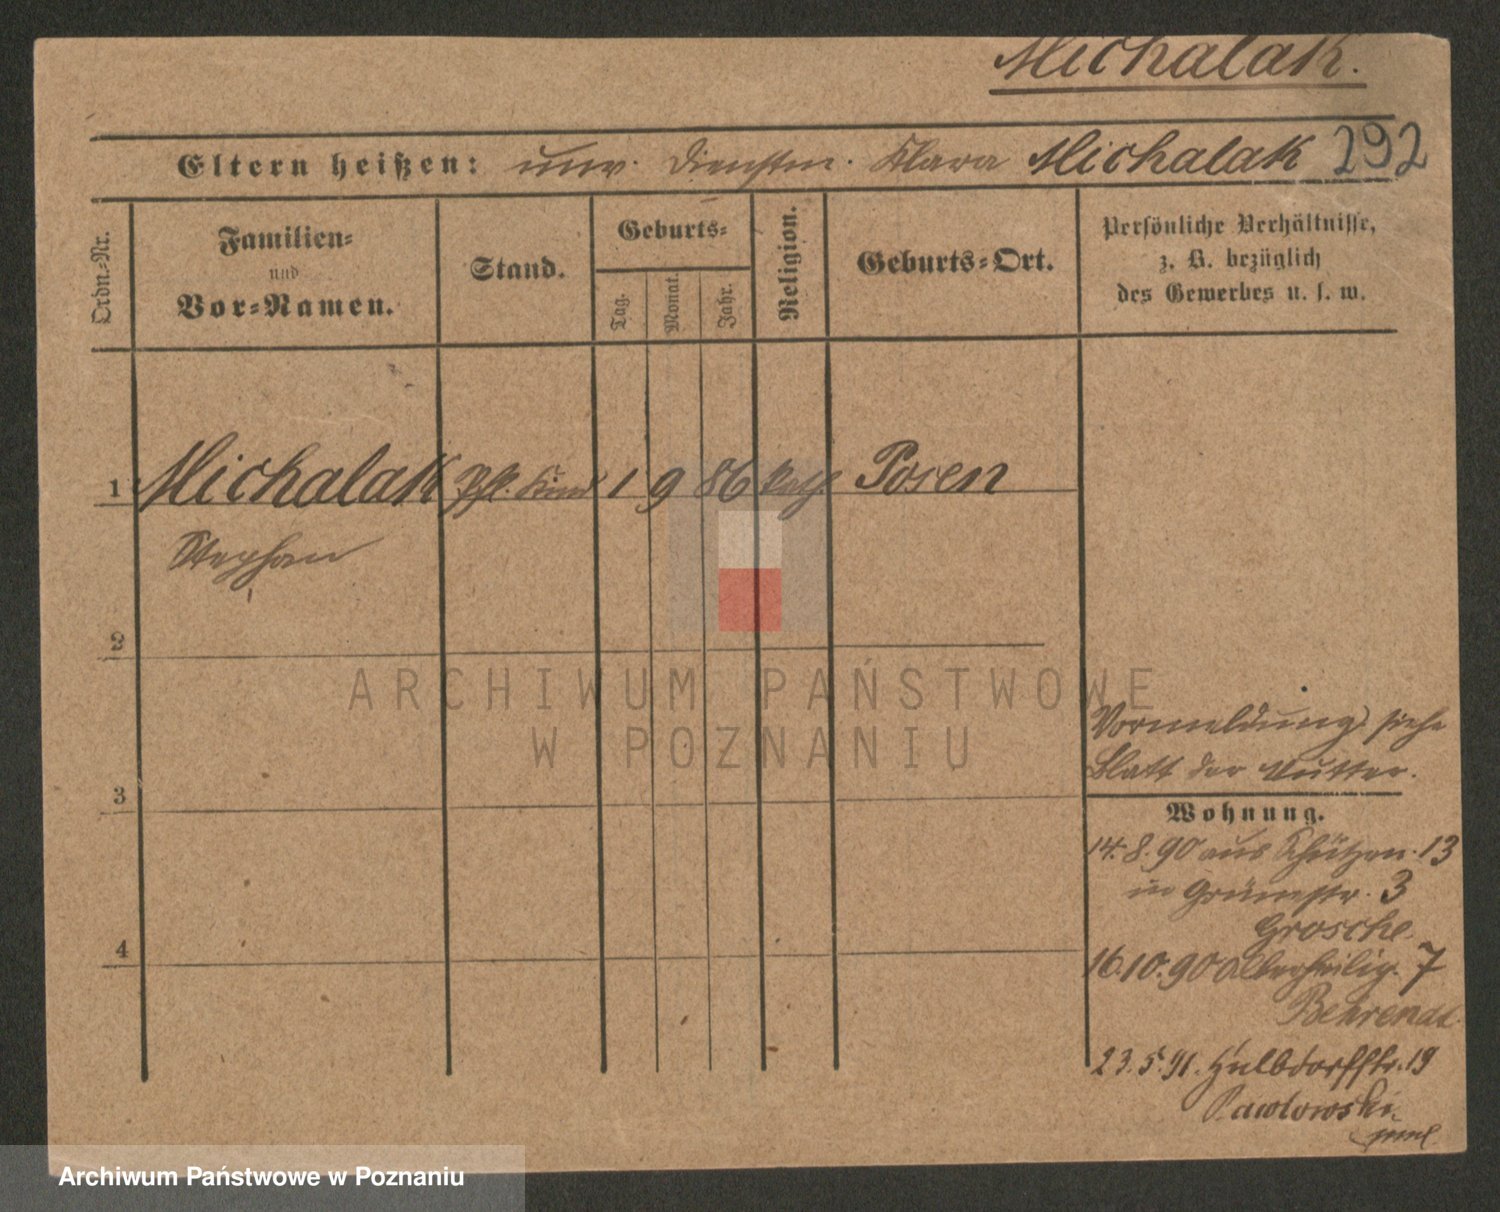 Michalak.
Eltern heißen: unv. Dienstm. Klara Michalak 292
Ordn.=Nr.
Familien=
und
Vor=Namen.
Stand.
Geburts=
Tag.
Monat.
Jahr.
Religion.
Geburts=Ort.
Persönliche Verhältnisse,
z. B. bezüglich
des Gewerbes u. s. w.
1 Michalak Pfl. Kind 1 9 86 kath. Posen
Stephan
2
3
4
Vormeldung siehe
Blatt der Mutter.
Wohnung.
14.8.90 aus Schützen. 13
in Grünestr. 3
Grosche.
16.10.90 Allerheilig. 7
Behrendt.
23.5.91. Halbdorffstr. 19
Pawlowski
ARCHIWUM PAŃSTWOWE
W POZNANIU
Archiwum Państwowe w Poznaniu